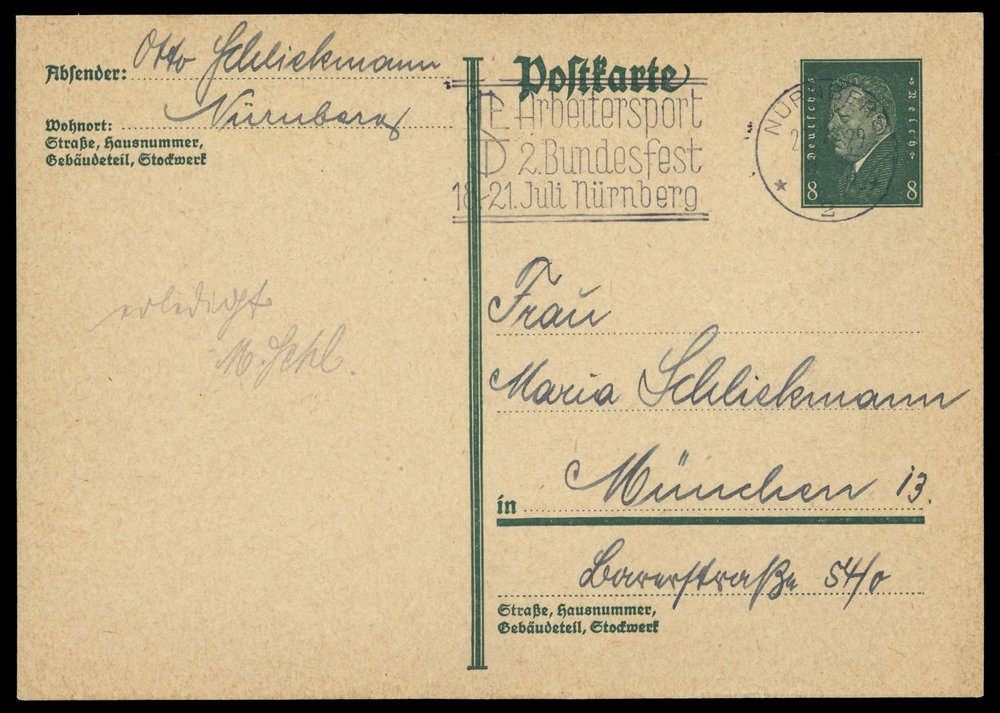 Absender: Otto Schlickmann
Nürnberg
Wohnort:
Straße, Hausnummer,
Gebäudeteil, Stockwerk
Postkarte
Arbeitersport
2. Bundesfest
18.-21. Juli Nürnberg
NÜRNBERG
2
Deutsches Reich
8 8
erledigt
M. Schl.
Frau
Maria Schlickmann
in München 13.
Barerstraße 54/0
Straße, Hausnummer,
Gebäudeteil, Stockwerk